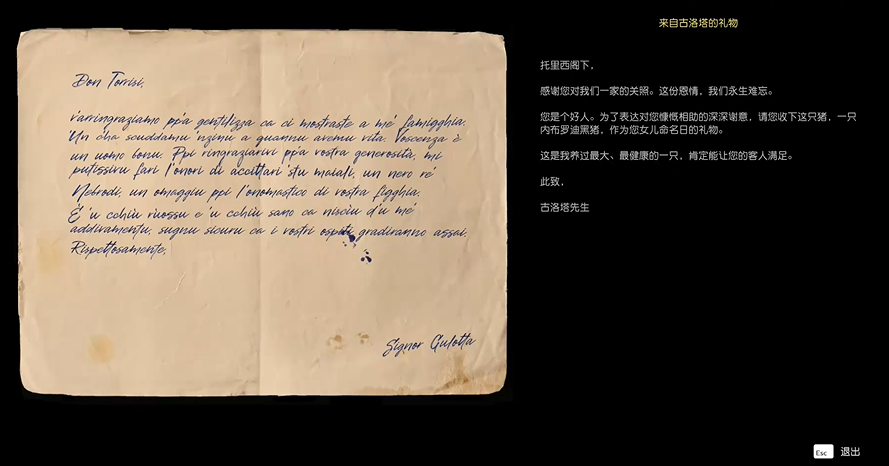 Don Torrisi,
v'arringraziamo pp'a gentilizza ca ci mostraste a me' famigghia.
'Un cha scuddamu 'nzinu a quannu avemu vita. Voscenza è
un uomo bonu. Ppi ringraziarivi pp'a vostra generosità, mi
putissivu fari l'onori di accittari 'stu maiali, un nero re'
Nebrodi, un omaggiu ppi l'onomastico di vostra figghia.
È 'u cchiù ruossu e 'u cchiù sano ca nisciu d'u me'
addivamentu, sugnu sicuru ca i vostri ospiti gradiranno assai.
Rispettosamente,
Signor Gulotta
来自古洛塔的礼物
托里西阁下，
感谢您对我们一家的关照。这份恩情，我们永生难忘。
您是个好人。为了表达对您慷慨相助的深深谢意，请您收下这只猪，一只
内布罗迪黑猪，作为您女儿命名日的礼物。
这是我养过最大、最健康的一只，肯定能让您的客人满足。
此致，
古洛塔先生
Esc 退出